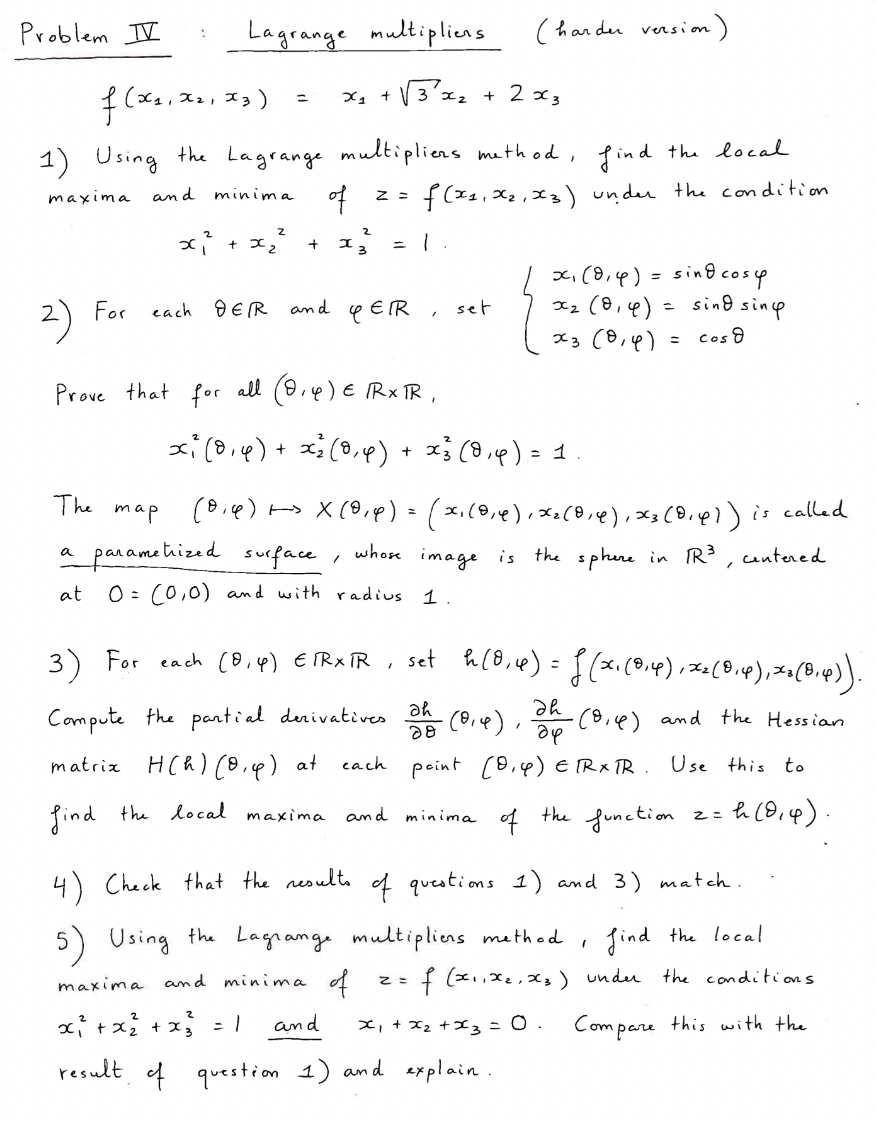 Problem IV : Lagrange multipliers (harder version)
f(x₁, x₂, x₃) = x₁ + √3 x₂ + 2 x₃
1) Using the Lagrange multipliers method, find the local
maxima and minima of z = f(x₁, x₂, x₃) under the condition
x₁² + x₂² + x₃² = 1.
2) For each θ ∈ ℝ and φ ∈ ℝ, set { x₁(θ,φ) = sinθ cosφ
x₂(θ,φ) = sinθ sinφ
x₃(θ,φ) = cosθ
Prove that for all (θ,φ) ∈ ℝ×ℝ,
x₁²(θ,φ) + x₂²(θ,φ) + x₃²(θ,φ) = 1.
The map (θ,φ) ↦ X(θ,φ) = (x₁(θ,φ), x₂(θ,φ), x₃(θ,φ)) is called
a parametrized surface, whose image is the sphere in ℝ³, centered
at O = (0,0) and with radius 1.
3) For each (θ,φ) ∈ ℝ×ℝ, set h(θ,φ) = f(x₁(θ,φ), x₂(θ,φ), x₃(θ,φ)).
Compute the partial derivatives ∂h/∂θ (θ,φ), ∂h/∂φ (θ,φ) and the Hessian
matrix H(h)(θ,φ) at each point (θ,φ) ∈ ℝ×ℝ. Use this to
find the local maxima and minima of the function z = h(θ,φ).
4) Check that the results of questions 1) and 3) match.
5) Using the Lagrange multipliers method, find the local
maxima and minima of z = f(x₁, x₂, x₃) under the conditions
x₁² + x₂² + x₃² = 1 and x₁ + x₂ + x₃ = 0. Compare this with the
result of question 1) and explain.